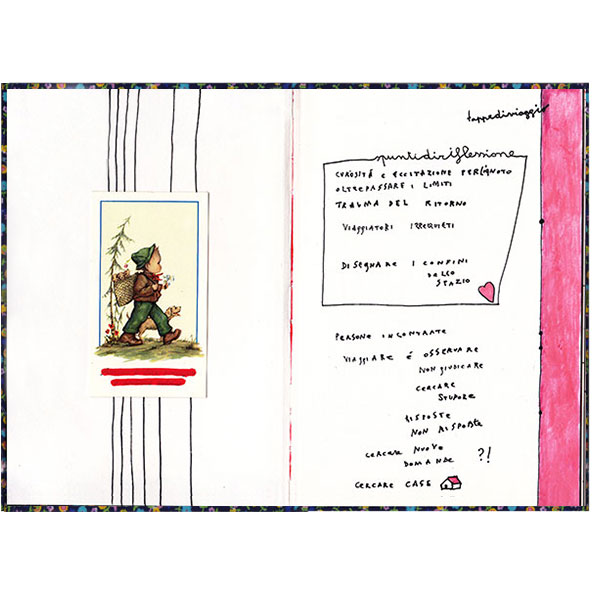 tappediviaggio
spuntidiriflessione
CURIOSITÁ E ECCITAZIONE PER L'IGNOTO
OLTREPASSARE I LIMITI
TRAUMA DEL RITORNO
VIAGGIATORI IRREQUIETI
DISEGNARE I CONFINI
DELLO
SPAZIO
PERSONE INCONTRATE
VIAGGIARE É OSSERVARE
NON GIUDICARE
CERCARE
STUPORE
RISPOSTE
NON RISPOSTE
CERCARE NUOVE
DOMANDE ?!
CERCARE CASE